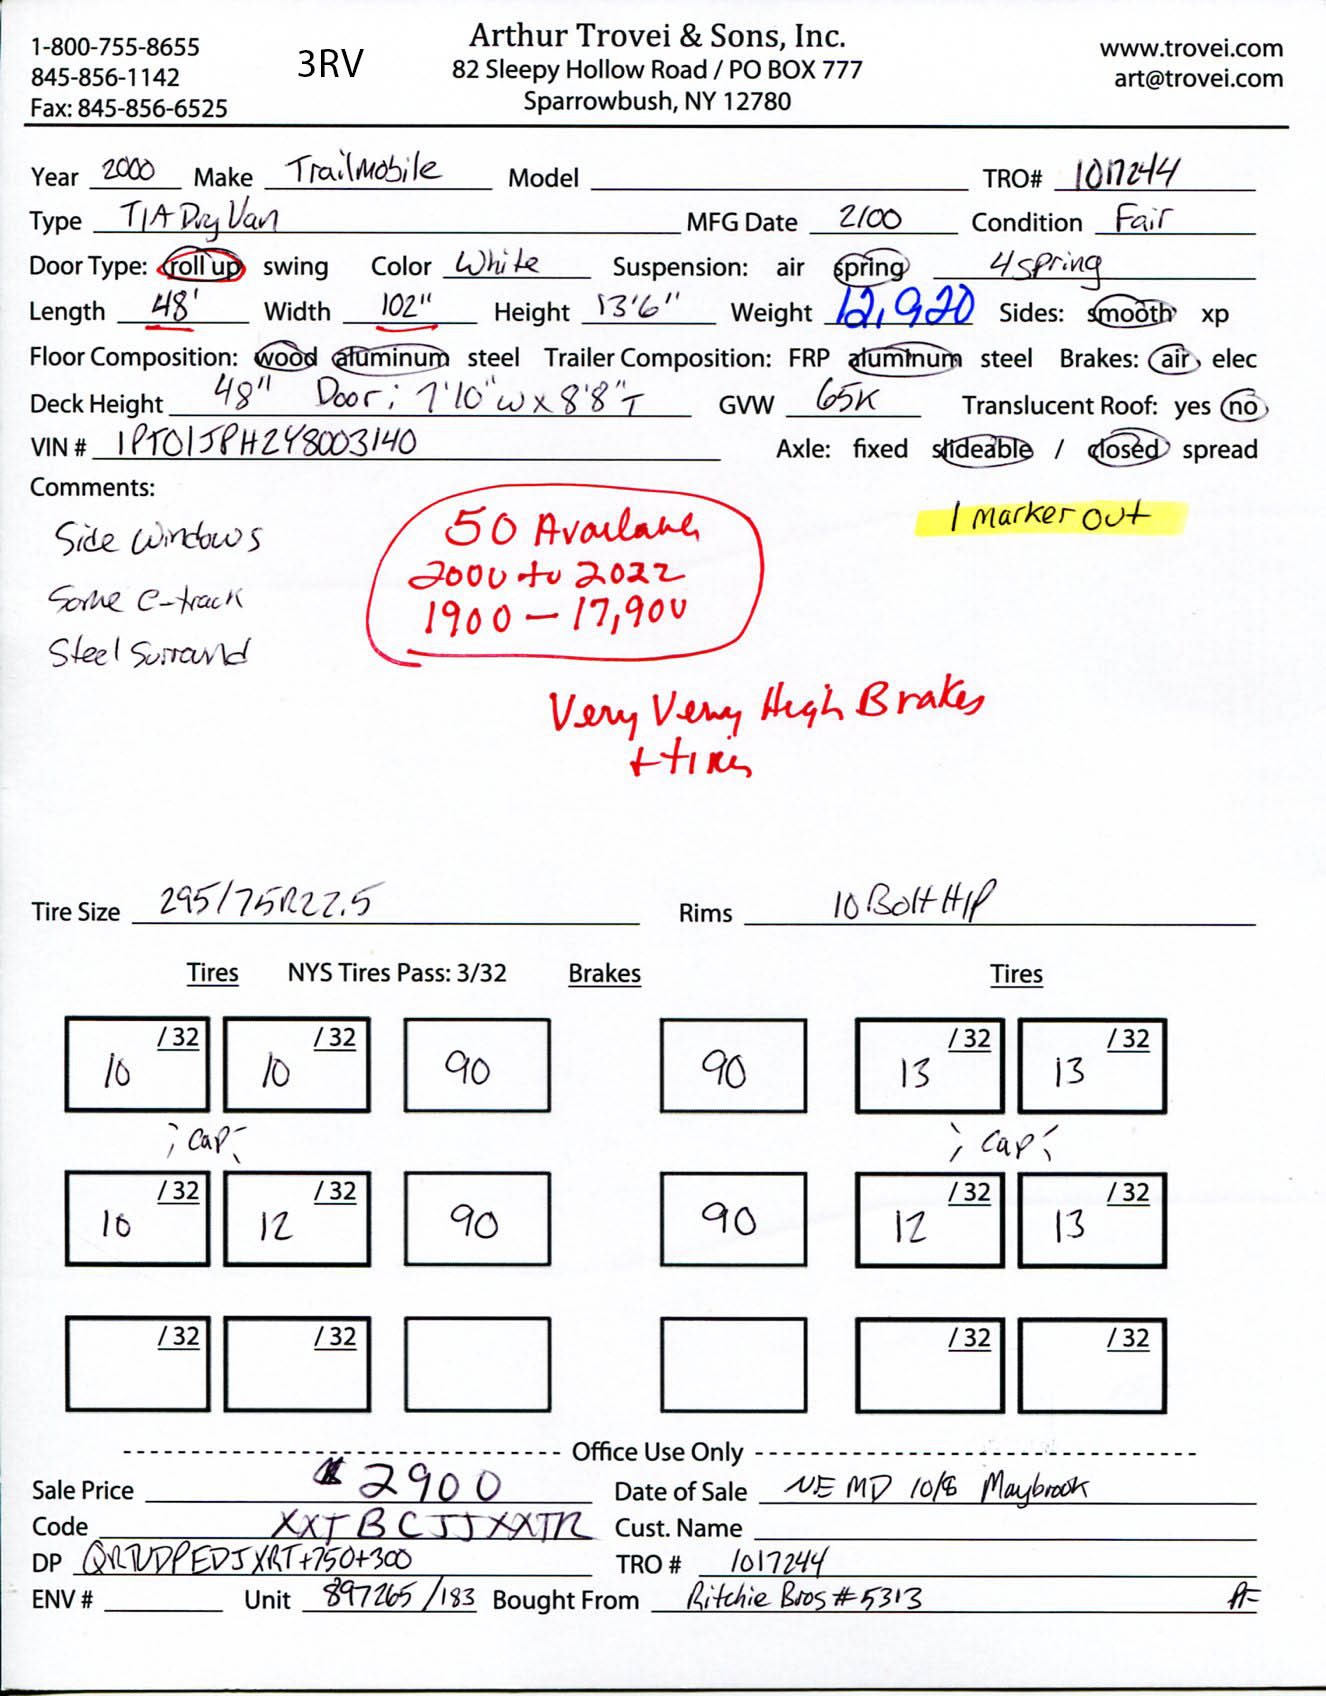 1-800-755-8655 3RV Arthur Trovei & Sons, Inc. www.trovei.com
845-856-1142 82 Sleepy Hollow Road / PO BOX 777 art@trovei.com
Fax: 845-856-6525 Sparrowbush, NY 12780
Year 2000 Make Trailmobile Model TRO# 1017244
Type T/A Dry Van MFG Date 2/00 Condition Fair
Door Type: roll up swing Color White Suspension: air spring 4 spring
Length 48' Width 102" Height 13'6" Weight 12,920 Sides: smooth xp
Floor Composition: wood aluminum steel Trailer Composition: FRP aluminum steel Brakes: air elec
Deck Height 48" Door: 7'10"W x 8'8"T GVW 65K Translucent Roof: yes no
VIN # 1PT01JPH2Y8003140 Axle: fixed slideable / closed spread
Comments:
Side windows
Some e-track
Steel Surround
50 Available
2000 to 2022
1900 - 17,900
1 marker out
Very Very High Brakes
+ tires
Tire Size 295/75R22.5 Rims 10 Bolt H/P
Tires NYS Tires Pass: 3/32 Brakes Tires
10 /32 10 /32 90 90 13 /32 13 /32
; cap ; ; cap ;
10 /32 12 /32 90 90 12 /32 13 /32
/32 /32 /32 /32
Office Use Only
Sale Price 2900 Date of Sale NE MD 10/8 Maybrook
Code XXTBCJJXXTR Cust. Name
DP +750+300 TRO # 1017244
ENV # Unit 897265/183 Bought From Ritchie Bros #5313